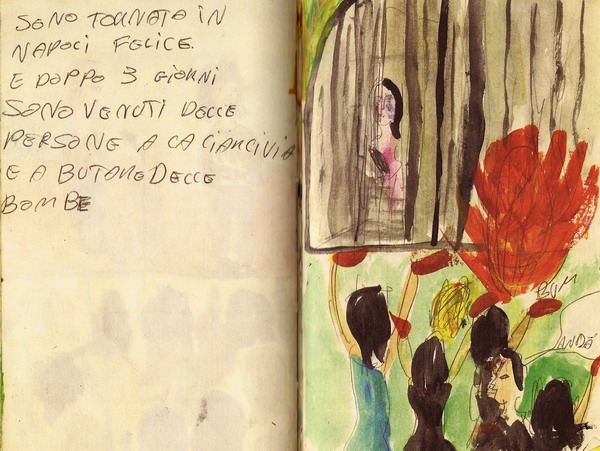 SONO TORNATO IN
NAPOLI FELICE.
E DOPPO 3 GIORNI
SONO VENUTI DELLE
PERSONE A CACIARCIVIA
E A BUTARE DELLE
BOMBE
BUM